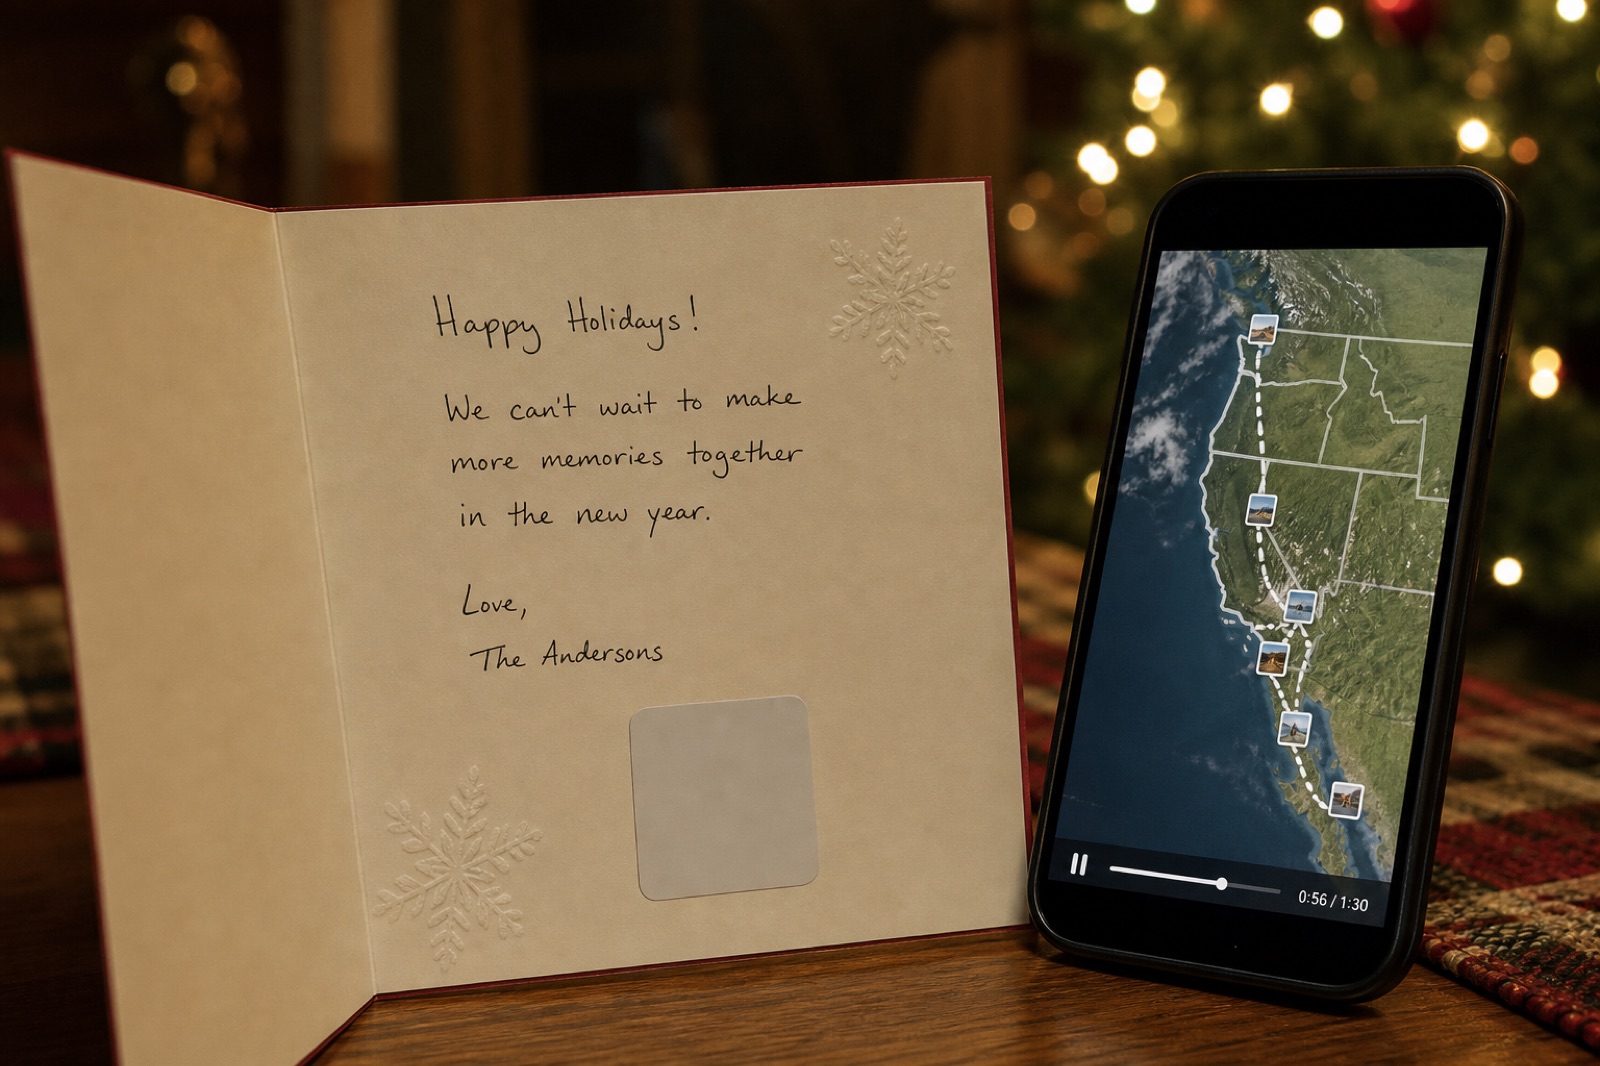 Happy Holidays!
We can't wait to make
more memories together
in the new year.
Love,
The Andersons
0:56 / 1:30